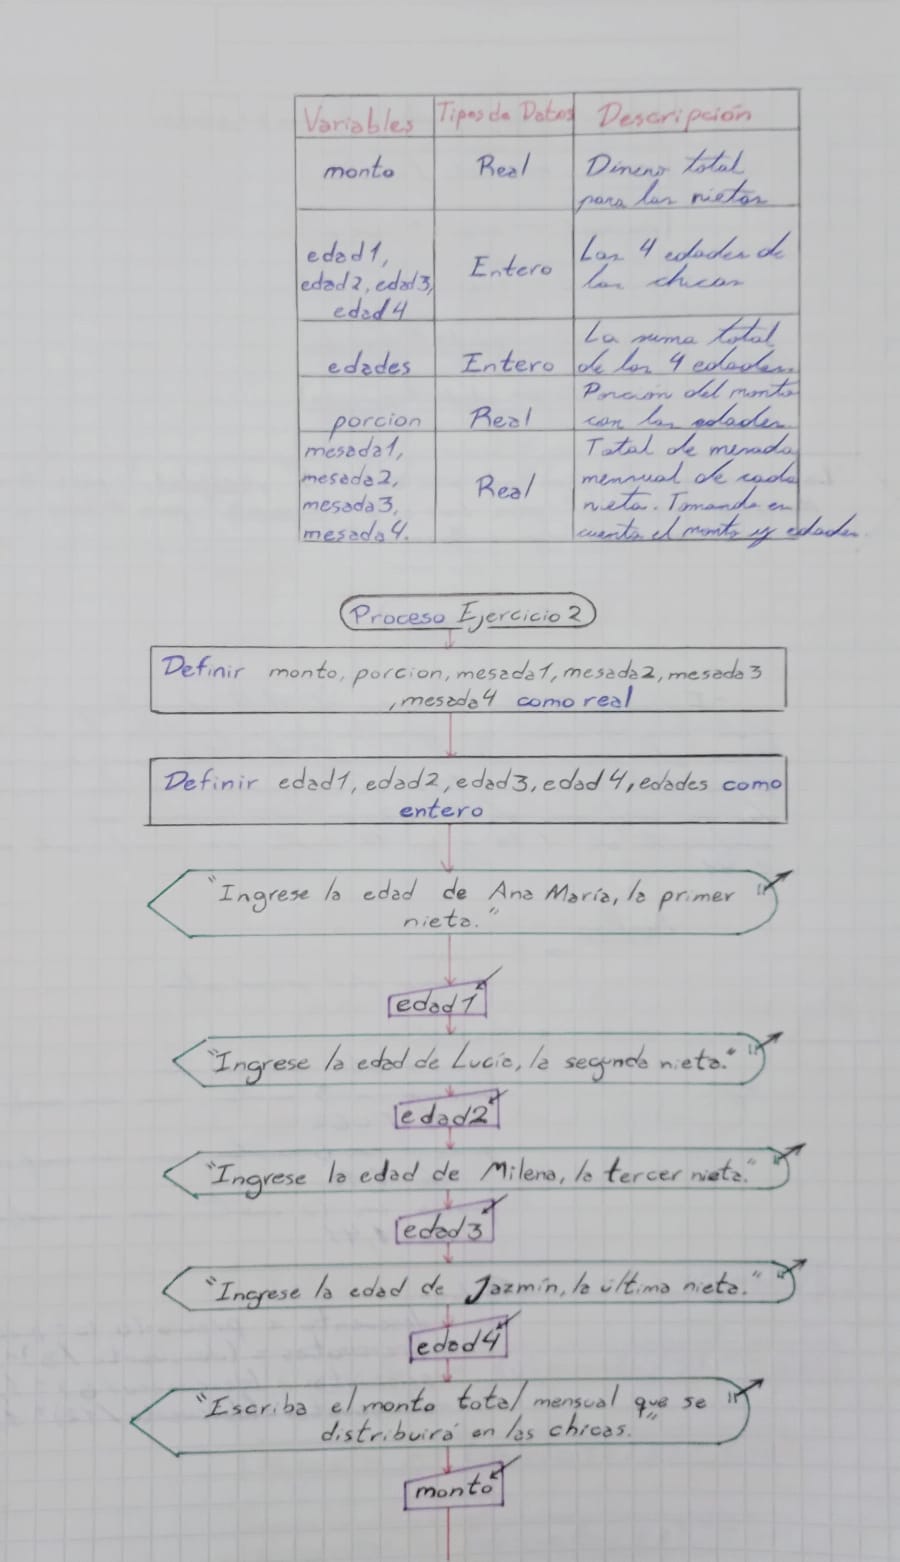 Variables Tipos de Datos Descripción
monto Real Dinero total
para las nietas
edad1,
edad2, edad3,
edad4
Entero
Las 4 edades de
las chicas
edades Entero La suma total
de las 4 edades.
porcion Real Porción del monto
con las edades.
mesada1,
mesada2,
mesada3,
mesada4.
Real
Total de mesada
mensual de cada
nieta. Tomando en
cuenta el monto y edades.
Proceso Ejercicio 2
Definir monto, porcion, mesada1, mesada2, mesada3
, mesada4 como real
Definir edad1, edad2, edad3, edad4, edades como
entero
"Ingrese la edad de Ana María, la primer
nieta."
edad1
"Ingrese la edad de Lucía, la segunda nieta."
edad2
"Ingrese la edad de Milena, la tercer nieta."
edad3
"Ingrese la edad de Jazmín, la última nieta."
edad4
"Escriba el monto total mensual que se
distribuirá en las chicas."
monto